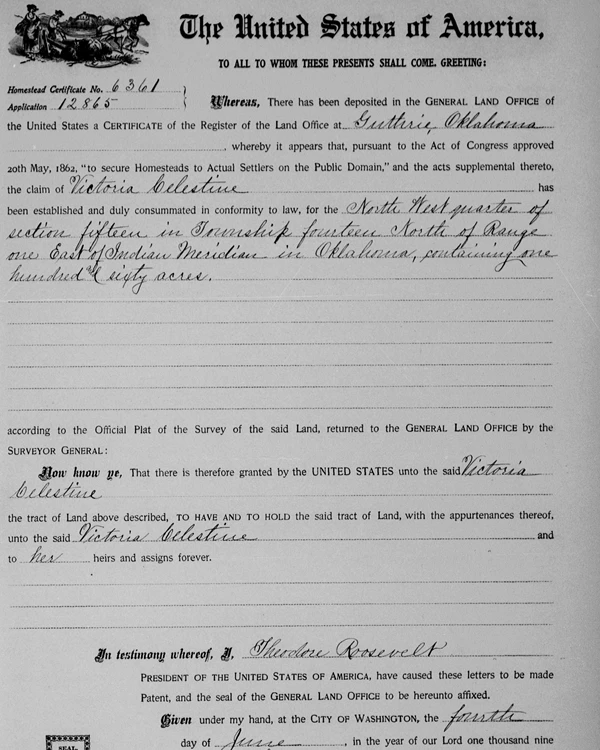 The United States of America,
TO ALL TO WHOM THESE PRESENTS SHALL COME, GREETING:
Homestead Certificate No. 6361
Application 12865
Whereas, There has been deposited in the GENERAL LAND OFFICE of
the United States a CERTIFICATE of the Register of the Land Office at Guthrie, Oklahoma
, whereby it appears that, pursuant to the Act of Congress approved
20th May, 1862, "to secure Homesteads to Actual Settlers on the Public Domain," and the acts supplemental thereto,
the claim of Victoria Celestine has
been established and duly consummated in conformity to law, for the North West quarter of
section fifteen in Township fourteen North of Range
one East of Indian Meridian in Oklahoma, containing one
hundred & sixty acres.
according to the Official Plat of the Survey of the said Land, returned to the GENERAL LAND OFFICE by the
SURVEYOR GENERAL:
Now know ye, That there is therefore granted by the UNITED STATES unto the said Victoria
Celestine
the tract of Land above described, TO HAVE AND TO HOLD the said tract of Land, with the appurtenances thereof,
unto the said Victoria Celestine and
to her heirs and assigns forever.
In testimony whereof, I, Theodore Roosevelt
PRESIDENT OF THE UNITED STATES OF AMERICA, have caused these letters to be made
Patent, and the seal of the GENERAL LAND OFFICE to be hereunto affixed.
Given under my hand, at the CITY OF WASHINGTON, the fourth
day of June, in the year of our Lord one thousand nine
SEAL.